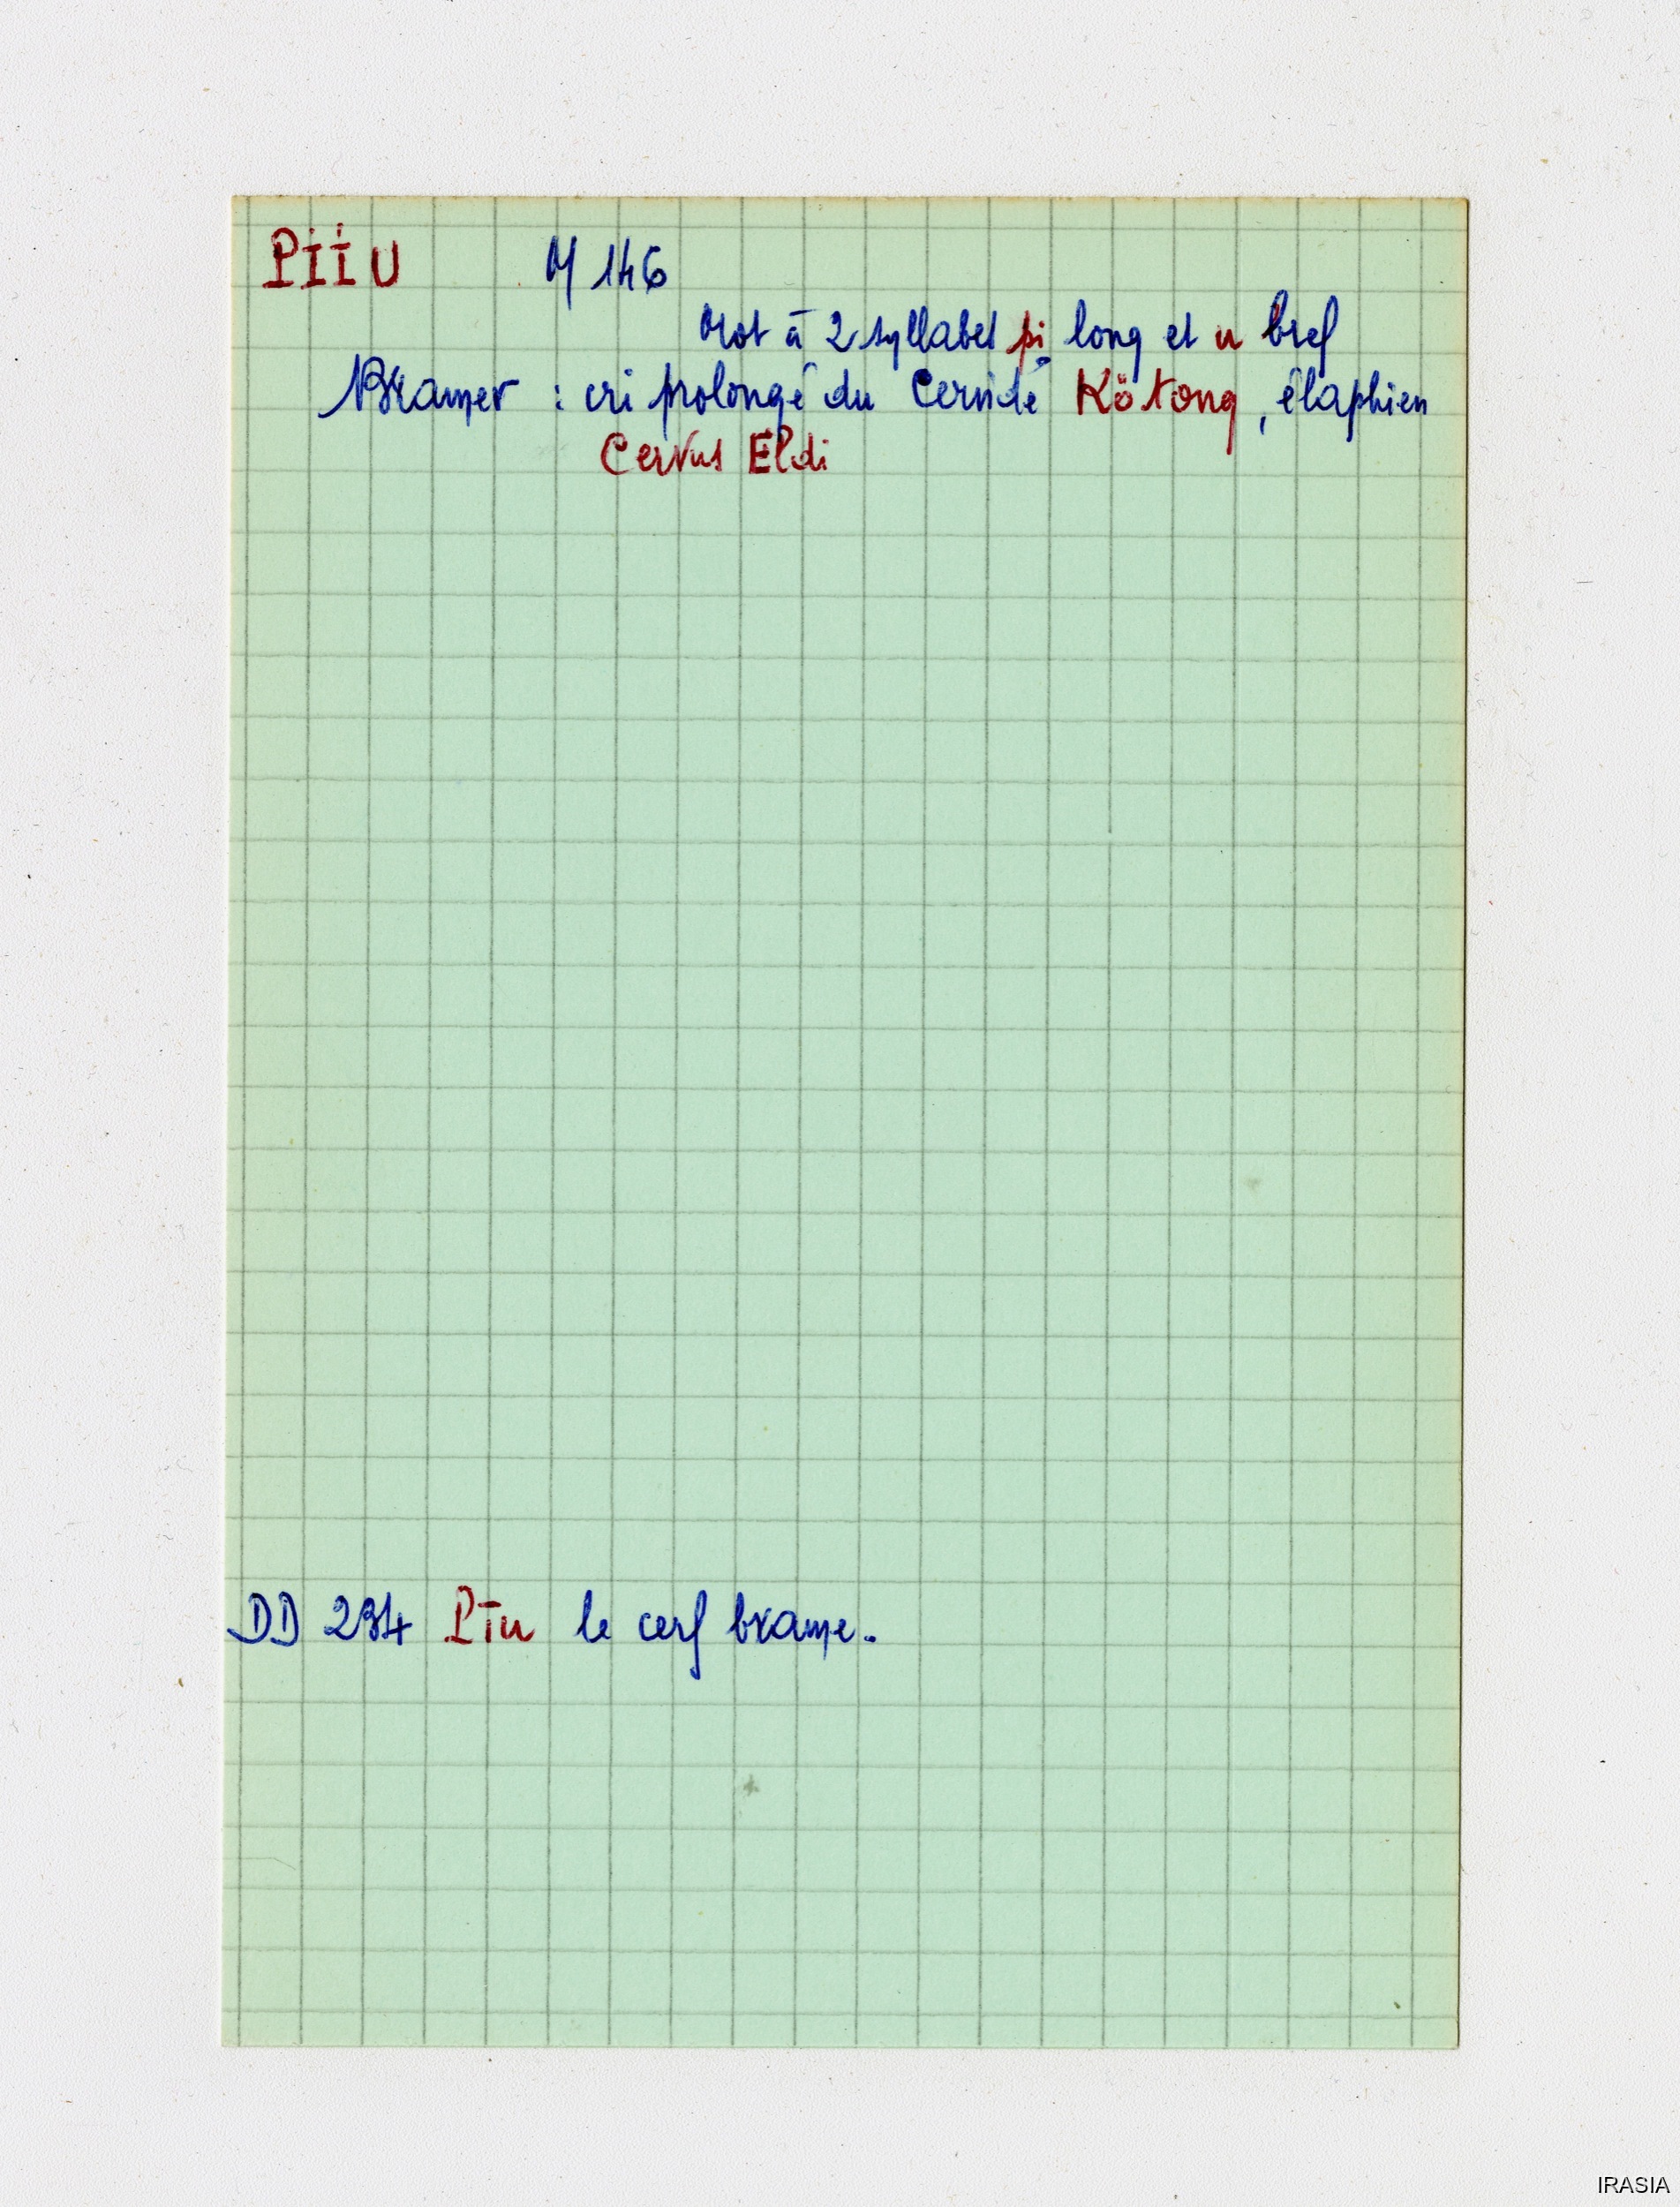 PIIU M 146
Mot à 2 syllabes pi long et u bref
Bramer : cri prolongé du Cervidé Kötong, élaphien
Cervus Eldi
DD 234 Pīu le cerf brame.
IRASIA